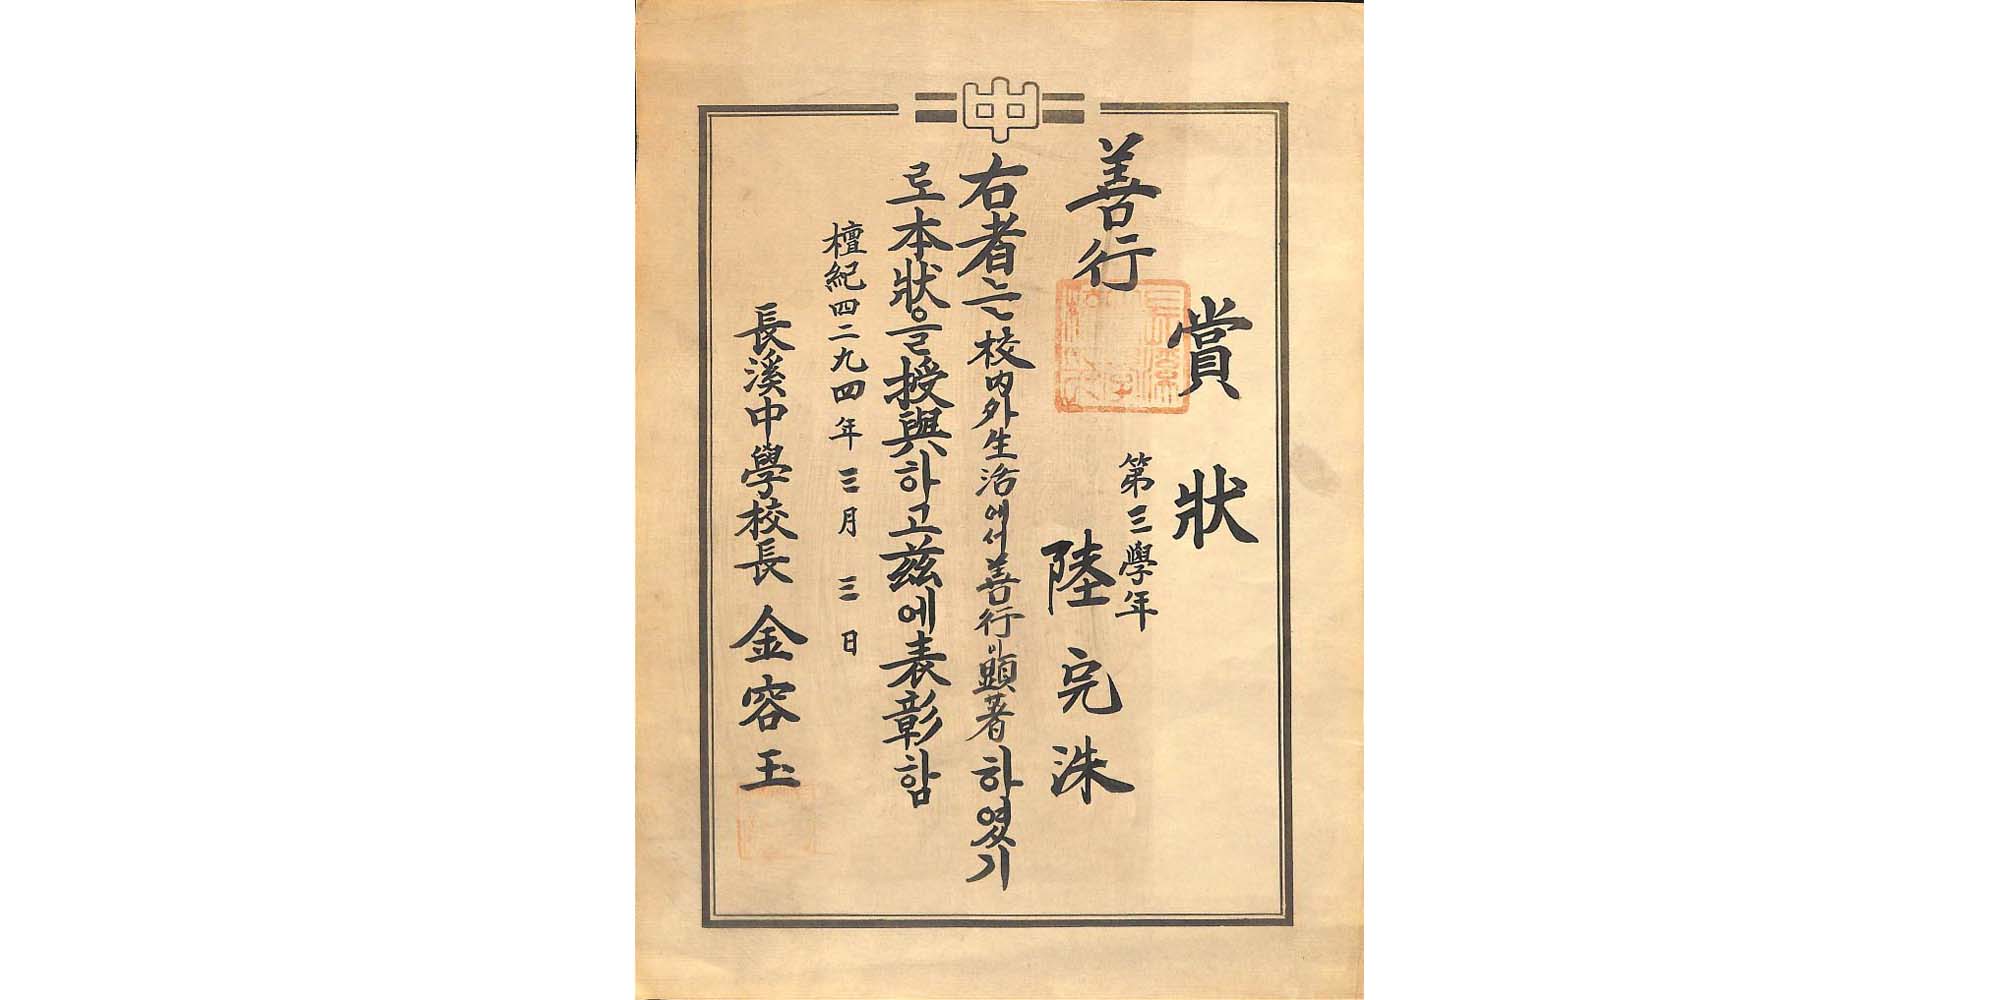 中
賞狀
善行
第三學年
陸完洙
右者는校內外生活에서善行이顯著하였기
로本狀을授與하고玆에表彰함
檀紀四二九四年三月三日
長溪中學校長 金容玉